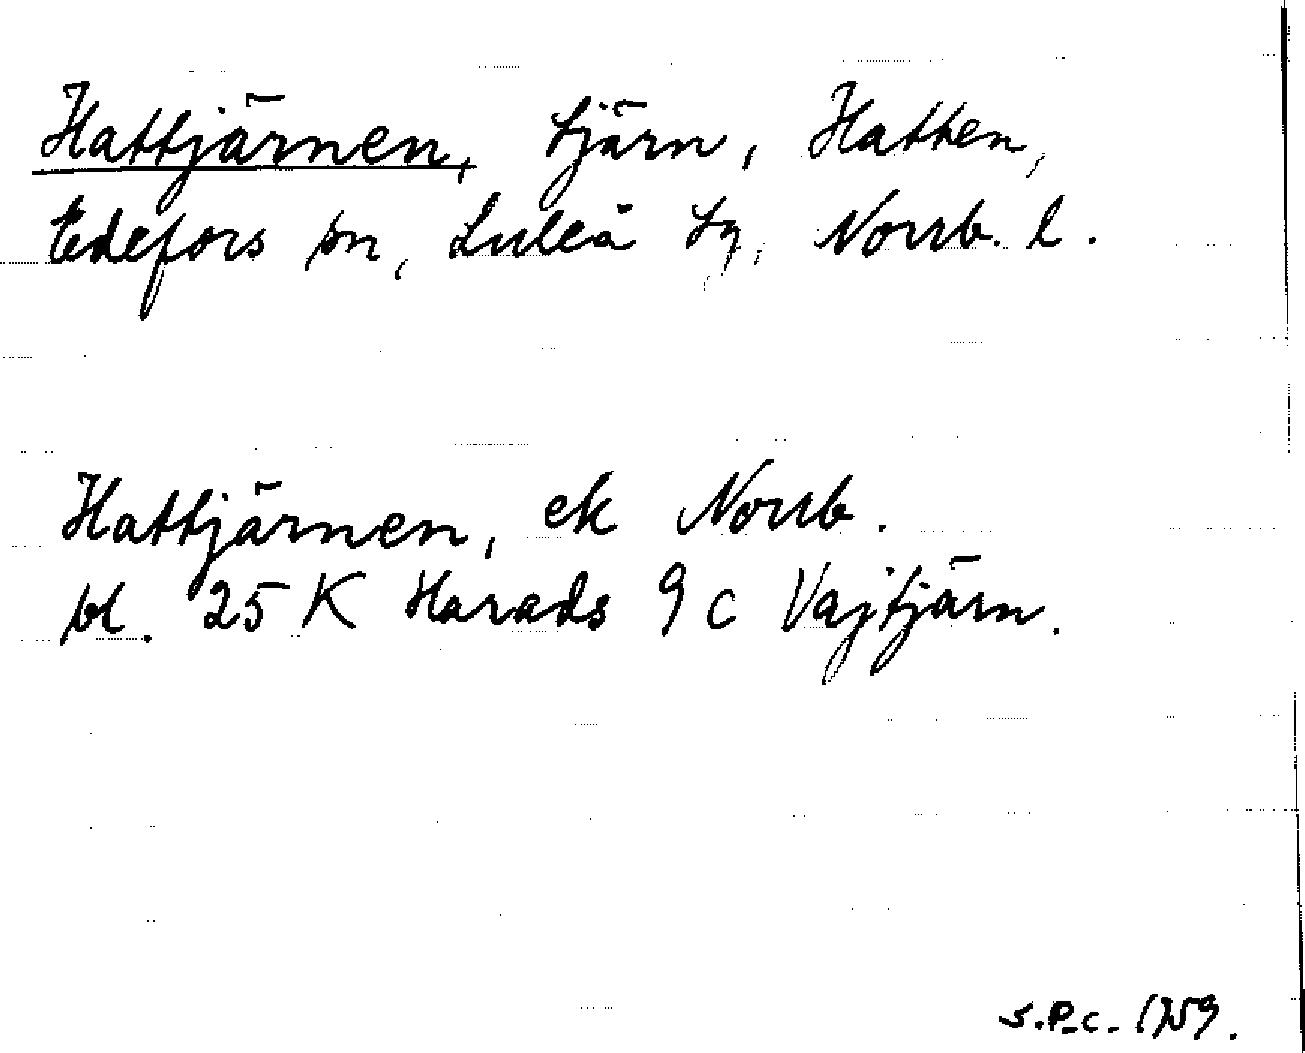 Hattjärnen, tjärn, Hatten,
Edefors sn, Luleå tg, Norrb. l.
Hattjärnen, ek Norrb.
bl. 25 K Harads 9 c Vajtjärn.
S.P.c. 1959.